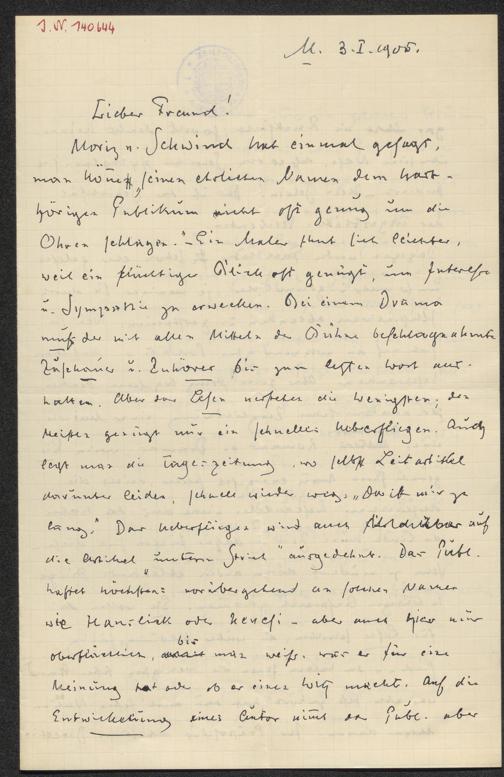 J.N. 140644
M. 3.I.1905.
Lieber Freund!
Moriz v. Schwind hat einmal gesagt,
man könne „seinen ehrlichen Namen dem hart-
hörigen Publikum nicht oft genug um die
Ohren schlagen." – Ein Maler thut sich leichter,
weil ein flüchtiger Blick oft genügt, um Interesse
u. Sympathie zu erwecken. Bei einem Drama
muß der mit allen Mitteln der Bühne beschlagnahmte
Zuschauer u. Zuhörer bis zum letzten Wort aus-
halten. Aber das Lesen verstehen die wenigsten; den
Meisten genügt nur ein schnelles Ueberfliegen. Auch
legt man die Tageszeitung, wo selbst Leitartikel
darunter leiden, schnell wieder weg: „Das ist mir zu
lang." Das Ueberfliegen wird auch auf
die Artikel „unterm Strich" ausgedehnt. Das Publ.
haftet höchstens vorübergehend an solchen Namen
wie Hanslick oder Hevesi – aber auch hier nur
oberflächlich, bis man weiß, was er für eine
Meinung hat oder ob er einen Witz macht. Auf die
Entwickelung eines Autor nimt das Publ. aber